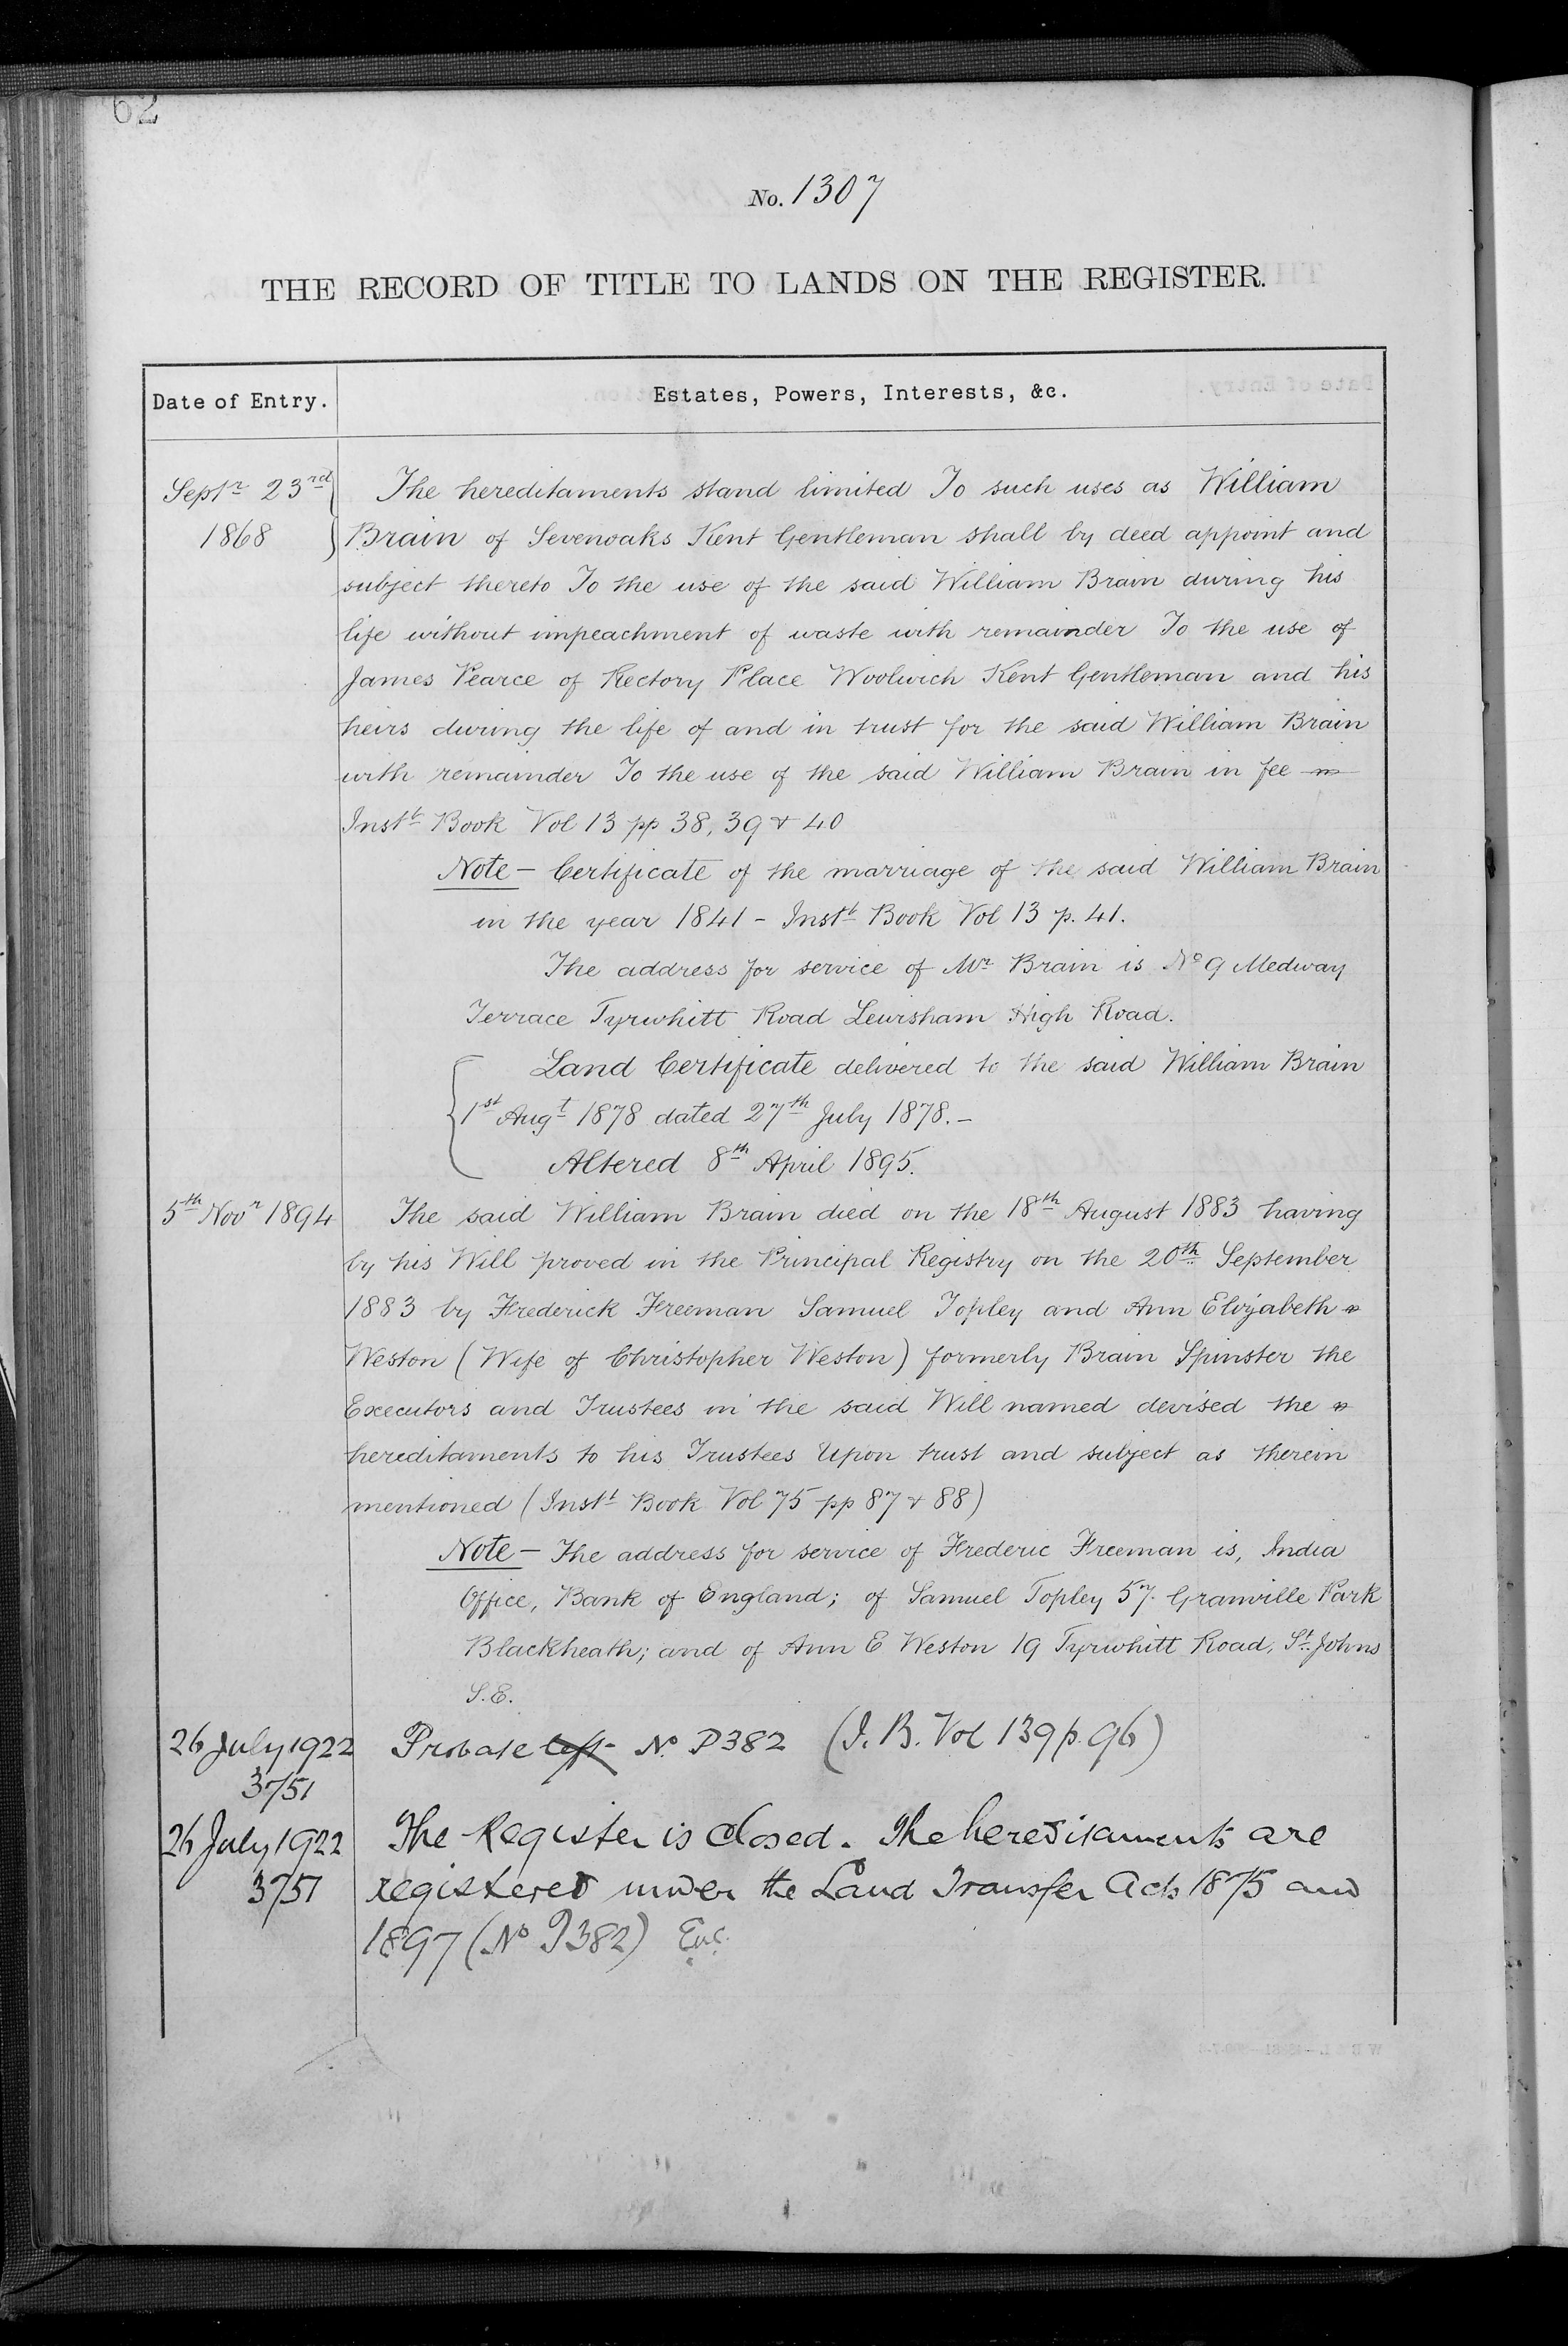 62
No. 1307
THE RECORD OF TITLE TO LANDS ON THE REGISTER.
Date of Entry.
Estates, Powers, Interests, &c.
Septr 23rd
1868
The hereditaments stand limited To such uses as William
Brain of Sevenoaks Kent Gentleman shall by deed appoint and
subject thereto To the use of the said William Brain during his
life without impeachment of waste with remainder To the use of
James Pearce of Rectory Place Woolwich Kent Gentleman and his
heirs during the life of and in trust for the said William Brain
with remainder To the use of the said William Brain in fee
Instt Book Vol 13 pp 38, 39 & 40
Note - Certificate of the marriage of the said William Brain
in the year 1841 - Instt Book Vol 13 p. 41.
The address for service of Mr Brain is No 9 Medway
Terrace Tyrwhitt Road Lewisham High Road.
Land Certificate delivered to the said William Brain
1st Augt 1878 dated 27th July 1878. -
Altered 8th April 1895.
5th Novr 1894
The said William Brain died on the 18th August 1883 having
by his Will proved in the Principal Registry on the 20th September
1883 by Frederick Freeman Samuel Topley and Ann Elizabeth
Weston (Wife of Christopher Weston) formerly Brain Spinster the
Executors and Trustees in the said Will named devised the
hereditaments to his Trustees Upon trust and subject as therein
mentioned (Instt Book Vol 75 pp 87 & 88)
Note - The address for service of Frederic Freeman is, India
Office, Bank of England; of Samuel Topley 57. Granville Park
Blackheath; and of Ann E Weston 19 Tyrwhitt Road, St. Johns
S.E.
26 July 1922
3751
Probate left No P382 (I.B. Vol 139 p. 96)
26 July 1922
3751
The Register is closed. The hereditaments are
registered under the Land Transfer Acts 1875 and
1897 (No P382)